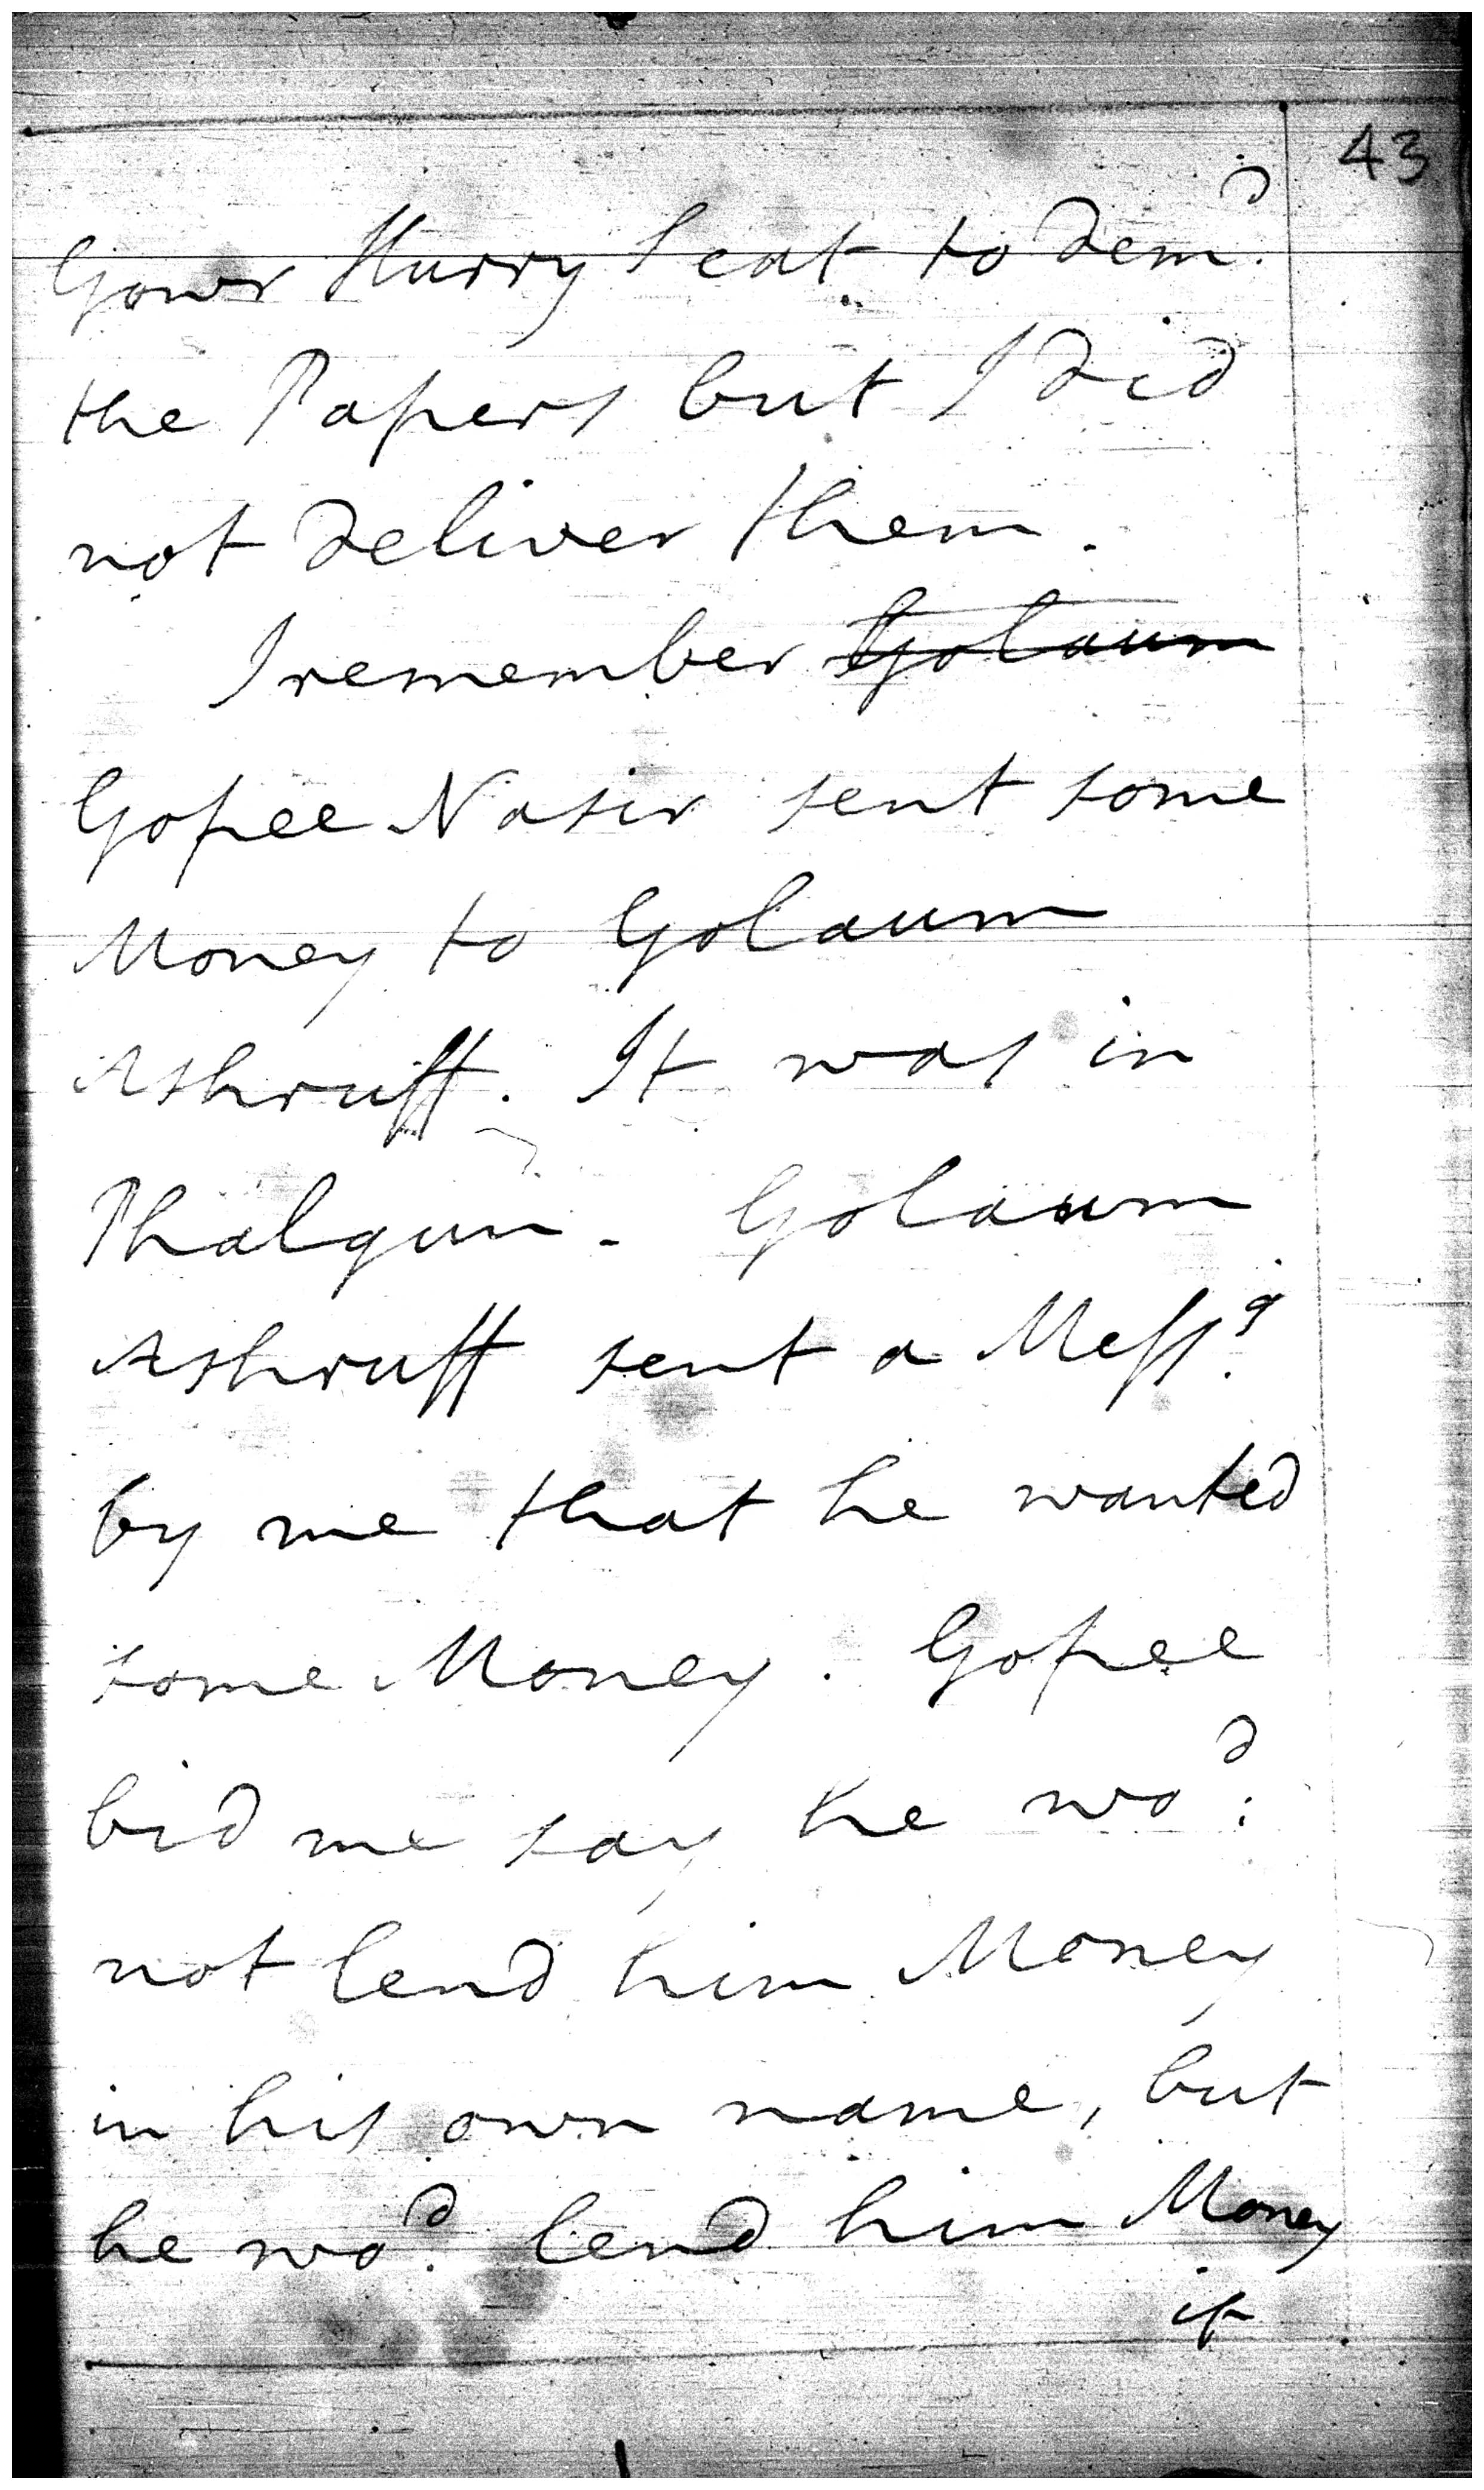 43
Gowr Hurry sent to dem^d.
the Papers but I did
not deliver them.
I remember ~~Golaum~~
Gopee Nasir sent some
Money to Golaum
Ashruff. It was in
Phalgun - Golaum
Ashruff sent a Mess^g.
by me that he wanted
some Money. Gopee
bid me say he wo^d.
not lend him Money
in his own name, but
he wo^d. lend him Money
if